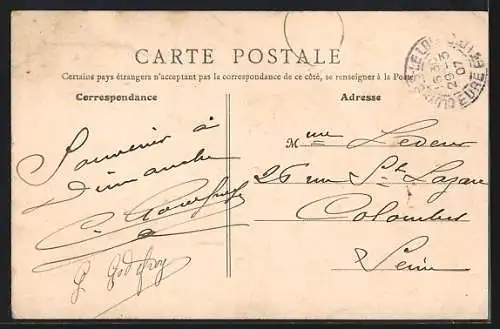 CARTE POSTALE
Certains pays étrangers n'acceptant pas la correspondance de ce côté, se renseigner à la Poste
Correspondance
Adresse
Souvenir à
Dimanche
G. Godefroy
Mme Ledeur
26 rue St Lazare
Colombes
Seine
29 5
07
EURE